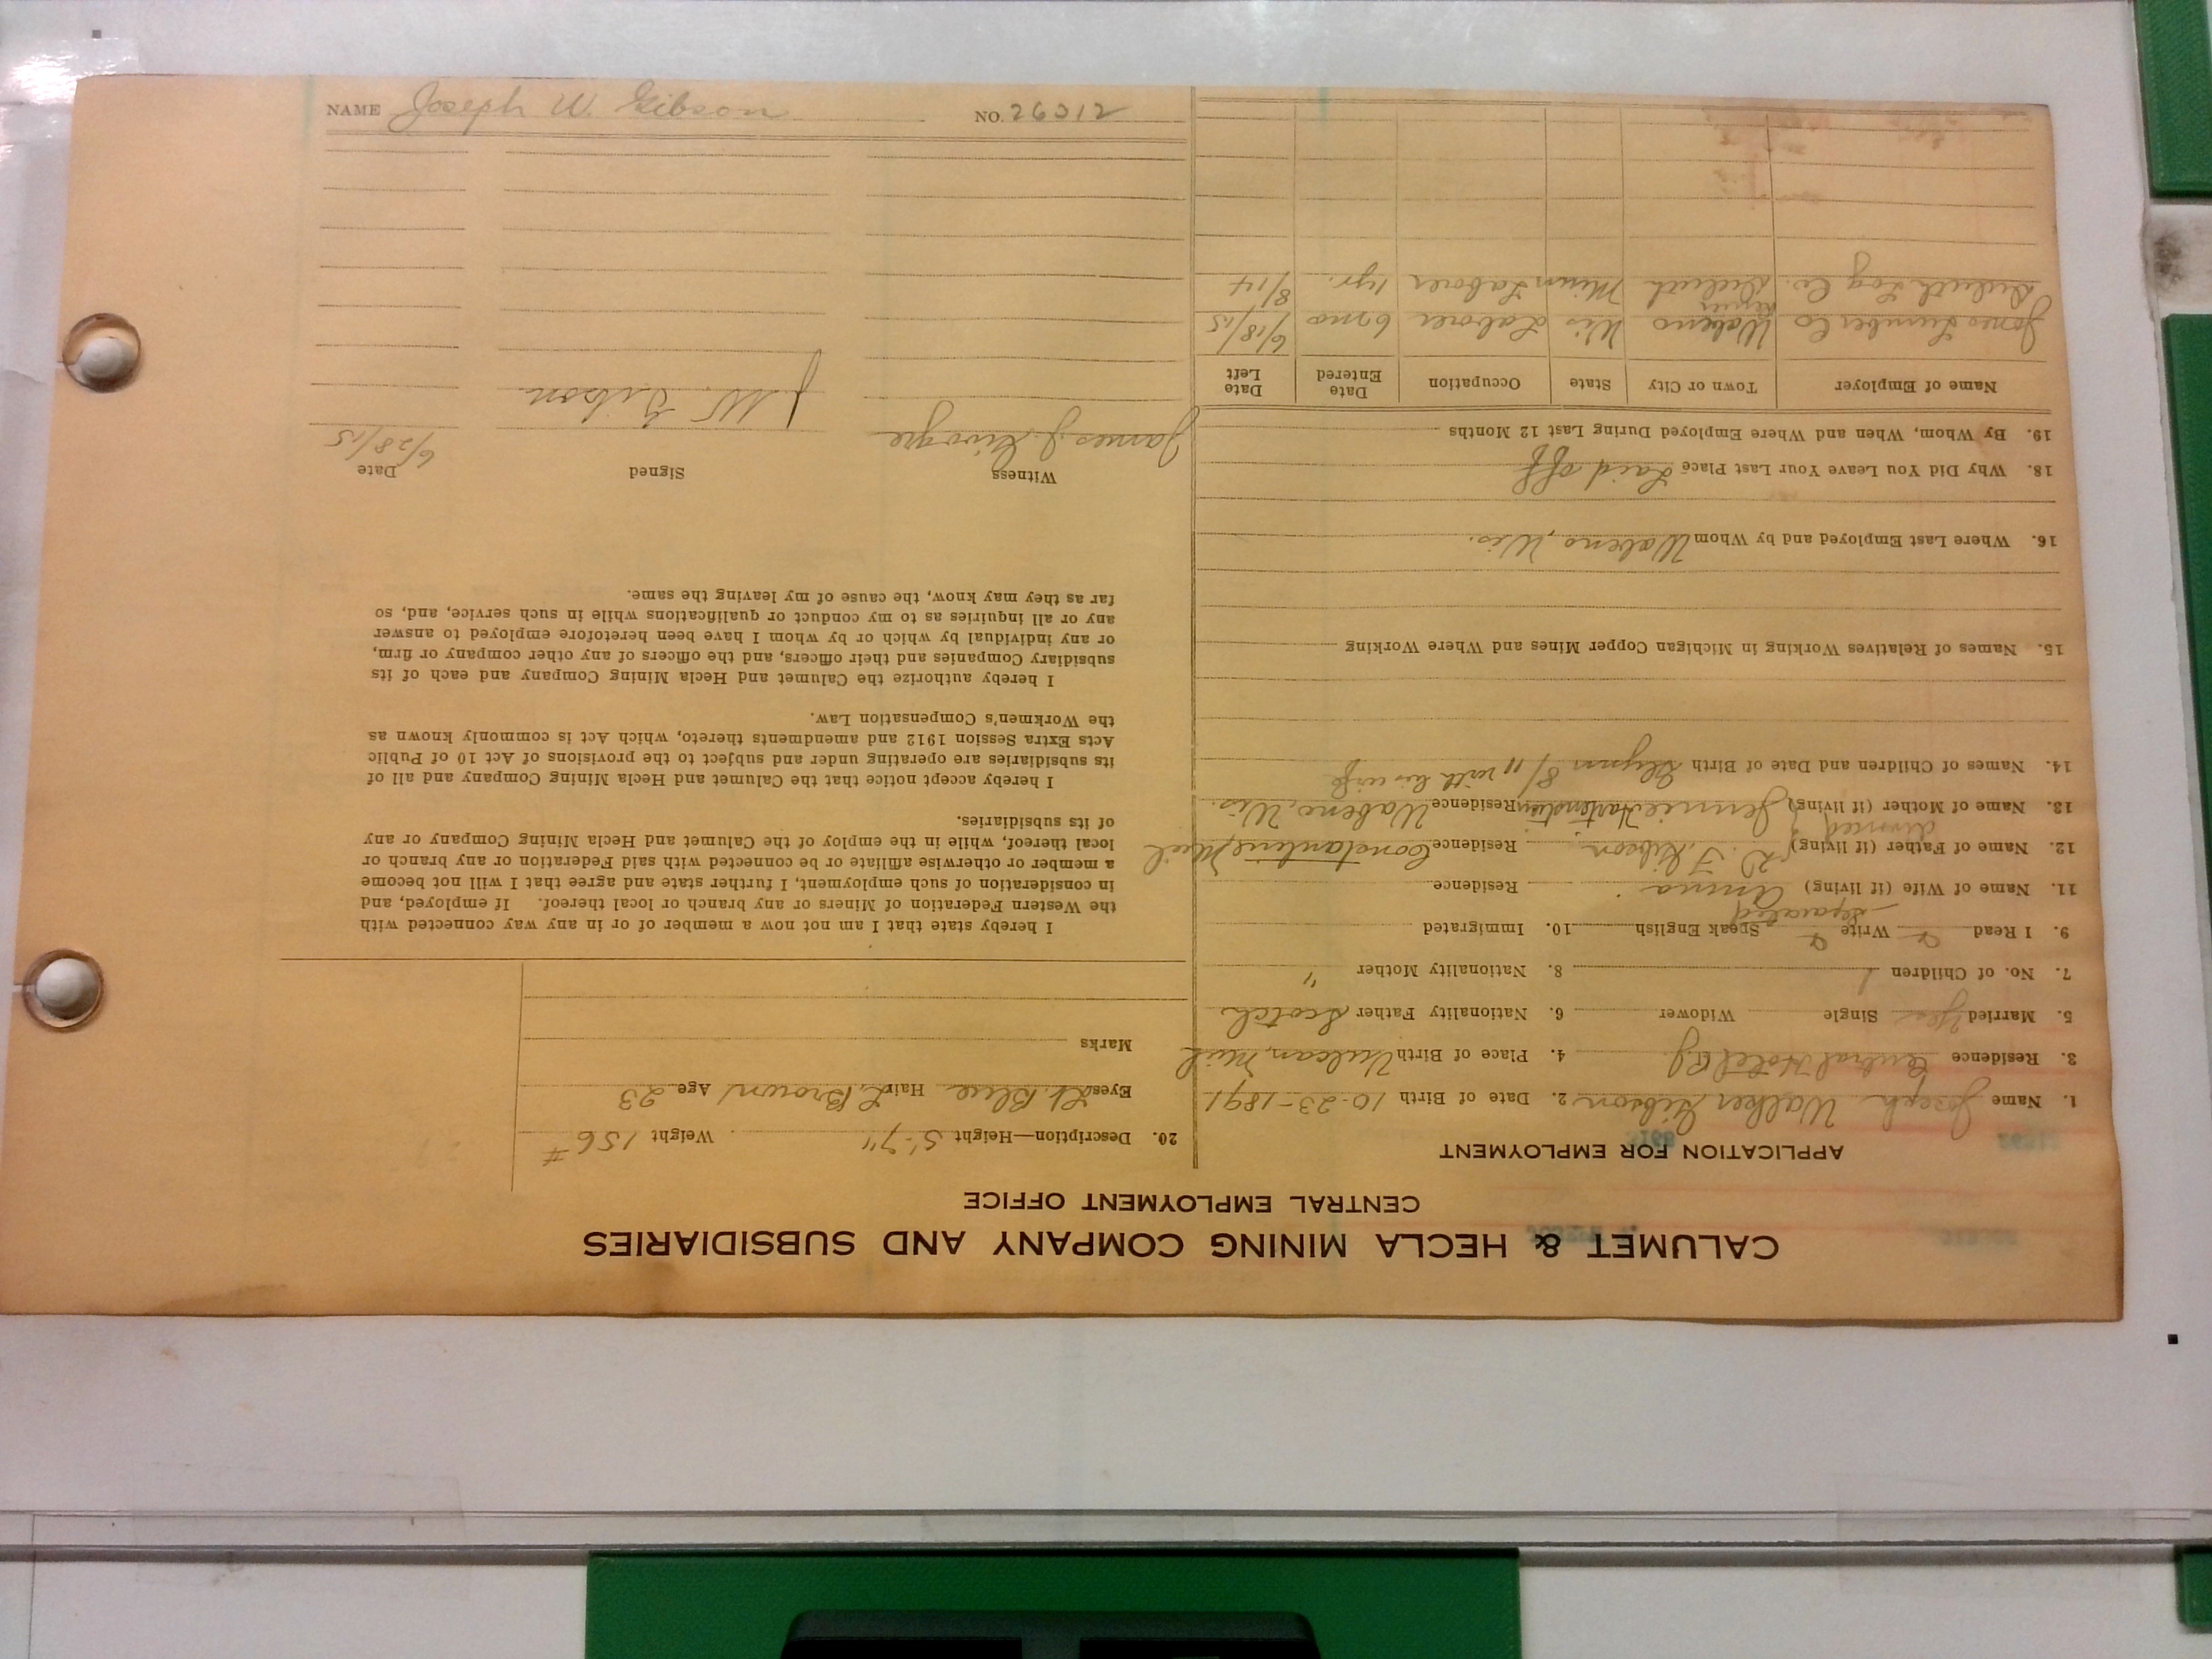 CALUMET & HECLA MINING COMPANY AND SUBSIDIARIES
CENTRAL EMPLOYMENT OFFICE
APPLICATION FOR EMPLOYMENT
1. Name Joseph Walker Gibson 2. Date of Birth 10-23-1891
3. Residence Central Hotel 4. Place of Birth Vulcan, Mich
5. Married Yes Single Widower 6. Nationality Father Scotch
7. No. of Children 1 8. Nationality Mother "
9. I Read Write Speak English 10. Immigrated
separated
11. Name of Wife (if living) Anna Residence
12. Name of Father (if living) D. F. Gibson Residence Constantine, Mich
divorced
13. Name of Mother (if living) Jennie Residence Wabeno, Wis.
14. Names of Children and Date of Birth 8/11 with his wife
15. Names of Relatives Working in Michigan Copper Mines and Where Working
16. Where Last Employed and by Whom Wabeno, Wis.
18. Why Did You Leave Your Last Place Laid off
19. By Whom, When and Where Employed During Last 12 Months
Name of Employer Town or City State Occupation Date Entered Date Left
Jones Lumber Co Wabeno Wis Laborer 6 mo 6/18/15
Duluth Log Co. Duluth Minn Laborer 1 yr. 8/14
20. Description—Height 5'-7" Weight 156 #
Eyes Lt. Blue Hair L. Brown Age 23
Marks
I hereby state that I am not now a member of or in any way connected with
the Western Federation of Miners or any branch or local thereof. If employed, and
in consideration of such employment, I further state and agree that I will not become
a member or otherwise affiliate or be connected with said Federation or any branch or
local thereof, while in the employ of the Calumet and Hecla Mining Company or any
of its subsidiaries.
I hereby accept notice that the Calumet and Hecla Mining Company and all of
its subsidiaries are operating under and subject to the provisions of Act 10 of Public
Acts Extra Session 1912 and amendments thereto, which Act is commonly known as
the Workmen's Compensation Law.
I hereby authorize the Calumet and Hecla Mining Company and each of its
subsidiary Companies and their officers, and the officers of any other company or firm,
or any individual by which or by whom I have been heretofore employed to answer
any or all inquiries as to my conduct or qualifications while in such service, and, so
far as they may know, the cause of my leaving the same.
Witness Signed Date
James J. J. W. Gibson 6/28/15
NAME Joseph W. Gibson NO. 26312